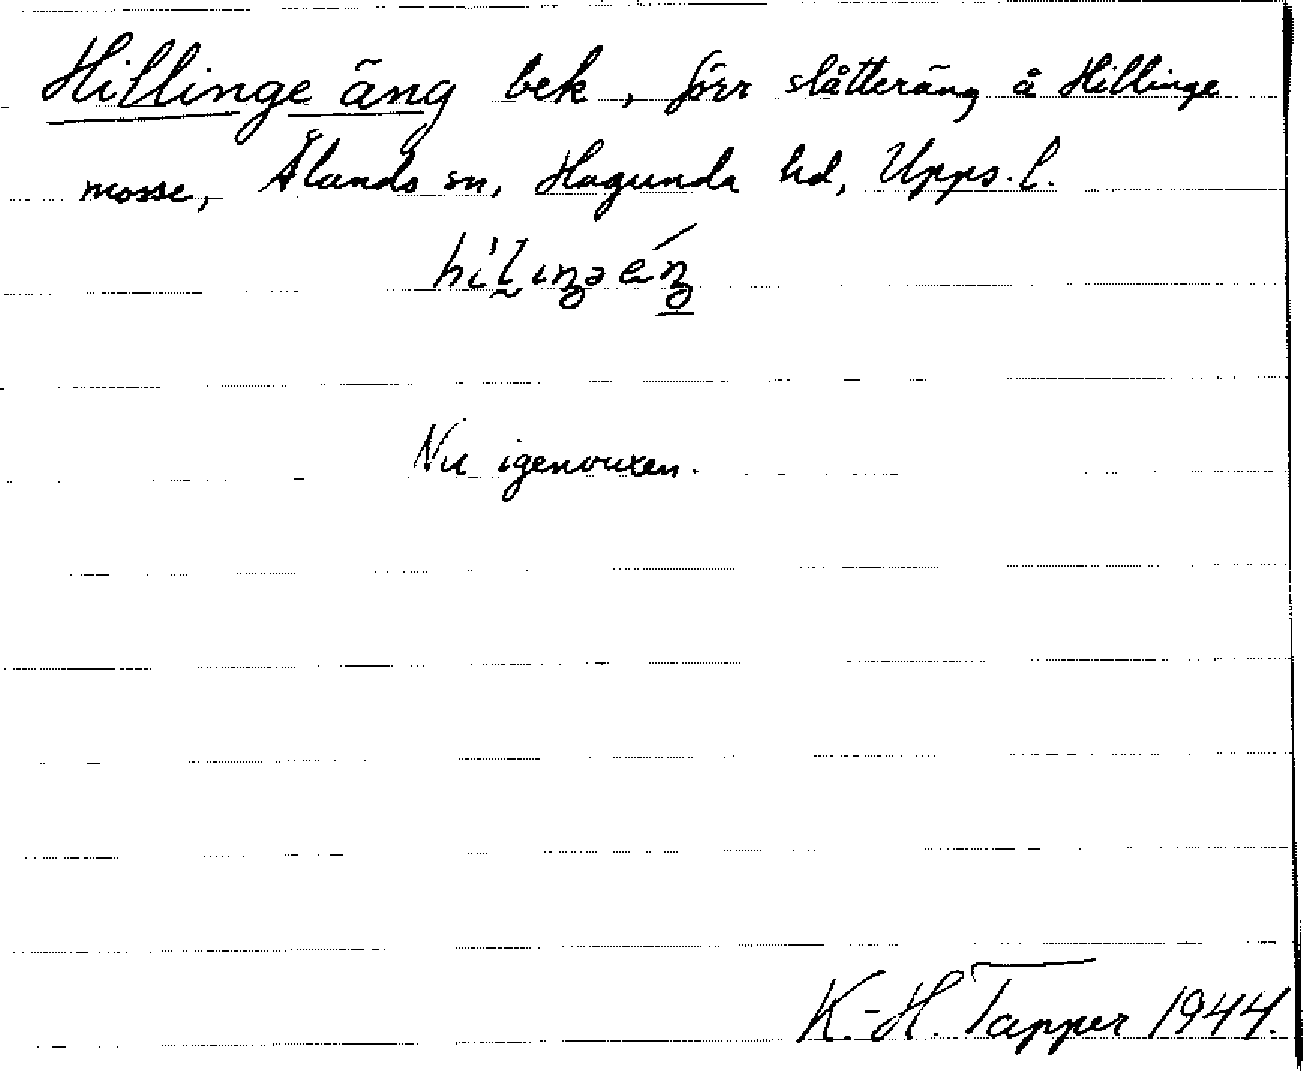 Hillinge äng bek, förr slåtteräng å Hillinge
mosse, Ålands sn, Hagunda hd, Upps. l.
Nu igenvuxen.
K.-H. Tapper 1944.